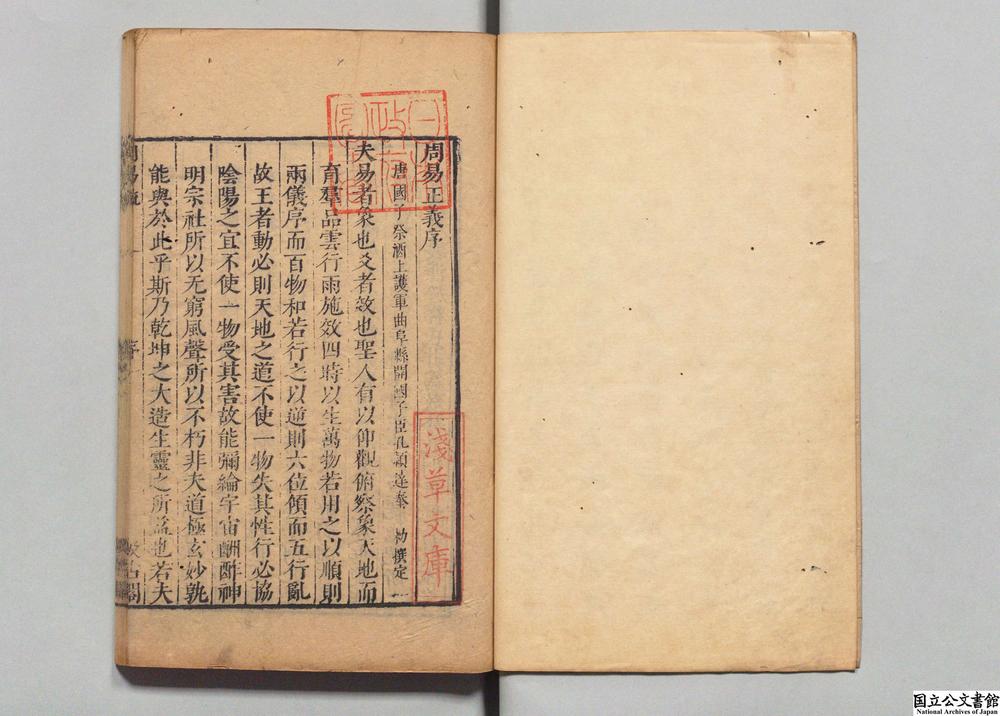 周易正義序
唐國子祭酒上護軍曲阜縣開國子臣孔頴達奉 勑撰定
夫易者象也爻者效也聖人有以仰觀俯察象天地而
育羣品雲行雨施效四時以生萬物若用之以順則
兩儀序而百物和若行之以逆則六位傾而五行亂
故王者動必則天地之道不使一物失其性行必協
陰陽之宜不使一物受其害故能彌綸宇宙酬酢神
明宗社所以无窮風聲所以不朽非夫道極玄妙孰
能與於此乎斯乃乾坤之大造生靈之所益也若夫
序
閣
淺草文庫
国立公文書館
National Archives of Japan